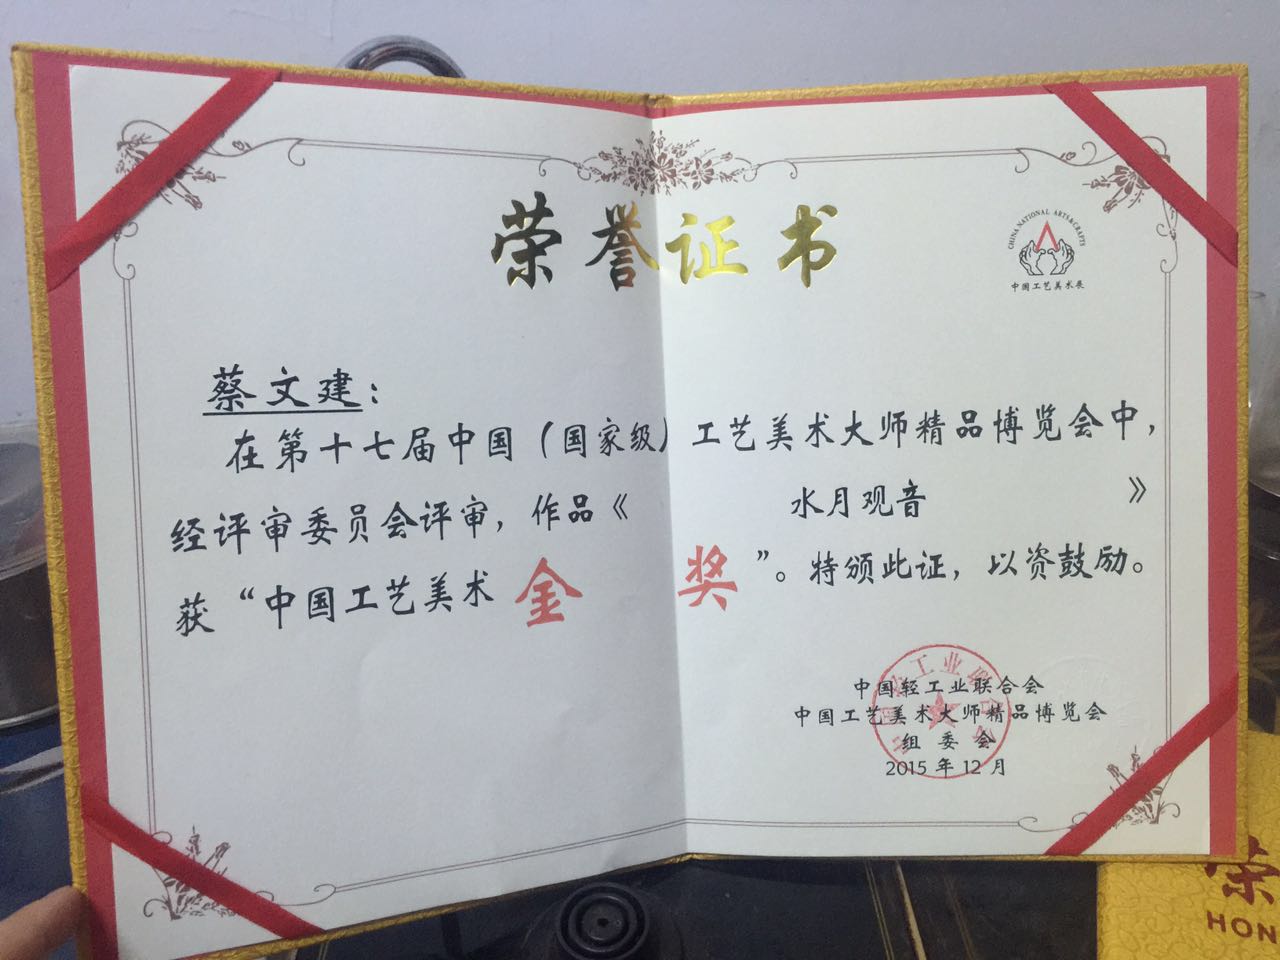 荣誉证书
CHINA NATIONAL ARTS&CRAFTS
中国工艺美术展
蔡文建：
在第十七届中国（国家级）工艺美术大师精品博览会中，
经评审委员会评审，作品《 水月观音 》
获“中国工艺美术金奖”。特颁此证，以资鼓励。
中国轻工业联合会
中国工艺美术大师精品博览会
组委会
2015年12月
荣
HON